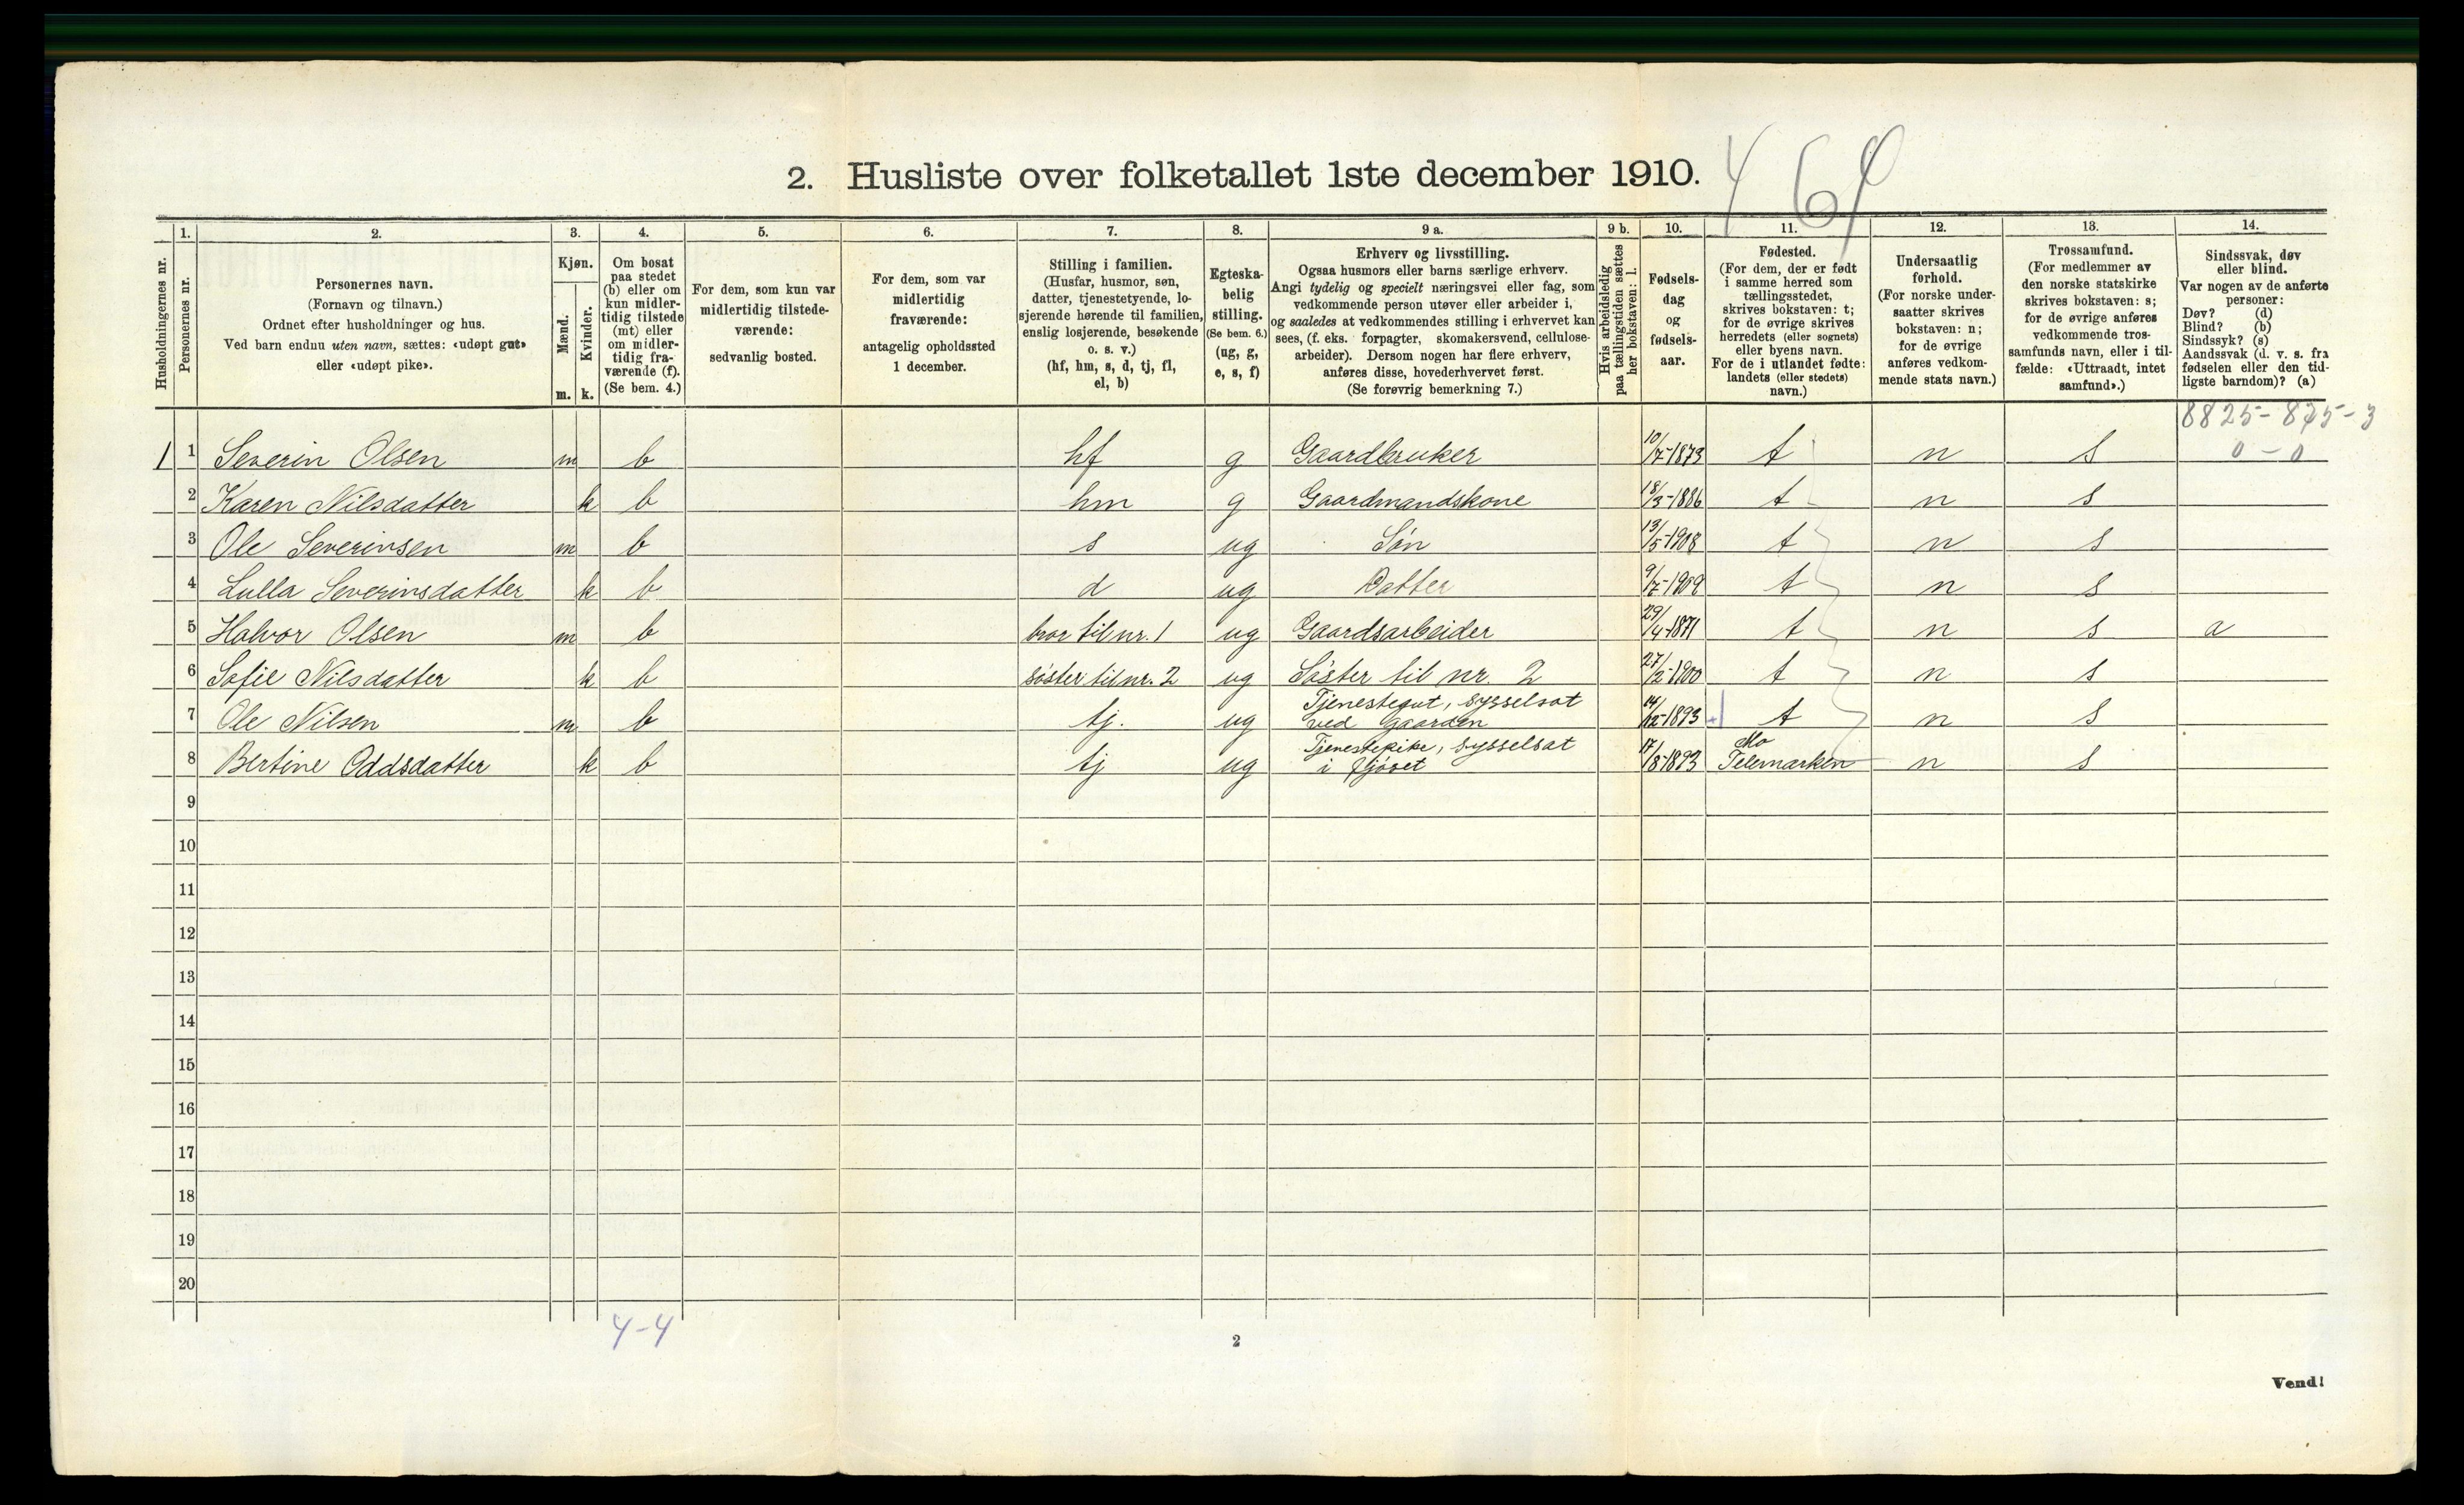 2. Husliste over folketallet 1ste december 1910.
464
Husholdningernes nr.
1.
Personernes nr.
2.
Personernes navn.
(Fornavn og tilnavn.)
Ordnet efter husholdninger og hus.
Ved barn endnu uten navn, sættes: «udøpt gut»
eller «udøpt pike».
3.
Kjøn.
Mænd.
Kvinder.
m. k.
4.
Om bosat
paa stedet
(b) eller om
kun midler-
tidig tilstede
(mt) eller
om midler-
tidig fra-
værende (f).
(Se bem. 4.)
5.
For dem, som kun var
midlertidig tilstede-
værende:
sedvanlig bosted.
6.
For dem, som var
midlertidig
fraværende:
antagelig opholdssted
1 december.
7.
Stilling i familien.
(Husfar, husmor, søn,
datter, tjenestetyende, lo-
sjerende hørende til familien,
enslig losjerende, besøkende
o. s. v.)
(hf, hm, s, d, tj, fl,
el, b)
8.
Egteska-
belig
stilling.
(Se bem. 6.)
(ug, g,
e, s, f)
9 a.
Erhverv og livsstilling.
Ogsaa husmors eller barns særlige erhverv.
Angi tydelig og specielt næringsvei eller fag, som
vedkommende person utøver eller arbeider i,
og saaledes at vedkommendes stilling i erhvervet kan
sees, (f. eks. forpagter, skomakersvend, cellulose-
arbeider). Dersom nogen har flere erhverv,
anføres disse, hovederhvervet først.
(Se forøvrig bemerkning 7.)
9 b.
Hvis arbeidsledig
paa tællingstiden sættes
her bokstaven: l.
10.
Fødsels-
dag
og
fødsels-
aar.
11.
Fødested.
(For dem, der er født
i samme herred som
tællingsstedet,
skrives bokstaven: t;
for de øvrige skrives
herredets (eller sognets)
eller byens navn.
For de i utlandet fødte:
landets (eller stedets)
navn.)
12.
Undersaatlig
forhold.
(For norske under-
saatter skrives
bokstaven: n;
for de øvrige
anføres vedkom-
mende stats navn.)
13.
Trossamfund.
(For medlemmer av
den norske statskirke
skrives bokstaven: s;
for de øvrige anføres
vedkommende tros-
samfunds navn, eller i til-
fælde: «Uttraadt, intet
samfund».)
14.
Sindssvak, døv
eller blind.
Var nogen av de anførte
personer:
Døv? (d)
Blind? (b)
Sindssyk? (s)
Aandssvak (d. v. s. fra
fødselen eller den tid-
ligste barndom)? (a)
8825-875-3
0-0
1 1 Severin Olsen m b hf g Gaardbruker 10/7-1873 t n s
2 Karen Nilsdatter k b hm g Gaardmandskone 18/3-1886 t n s
3 Ole Severinsen m b s ug Søn 13/5-1908 t n s
4 Lulla Severinsdatter k b d ug Datter 9/7-1909 t n s
5 Halvor Olsen m b bror til nr. 1 ug Gaardsarbeider 29/4-1871 t n s a
6 Sofie Nilsdatter k b søster til nr. 2 ug Søster til nr. 2 27/2-1900 t n s
7 Ole Nilsen m b tj. ug Tjenestegut, sysselsat
ved gaarden 14/12-1893 t n s
8 Bertine Oddsdatter k b tj ug Tjenestepike, sysselsat
i fjöset 17/8-1893 Mo
Telemarken n s
9
10
11
12
13
14
15
16
17
18
19
20
4-4
2
Vend!